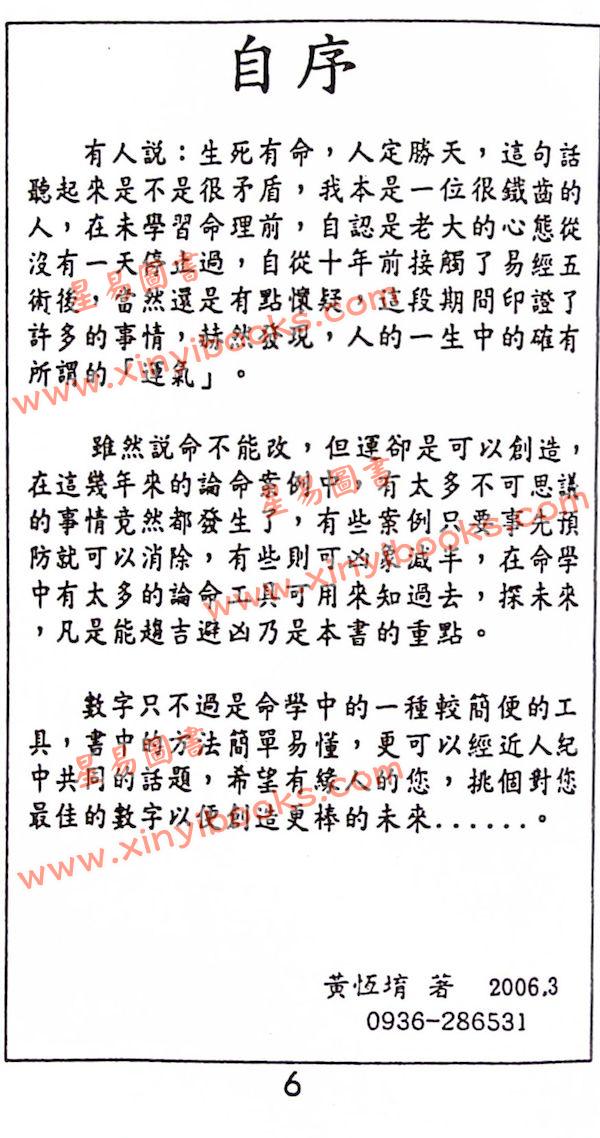 自序
有人說：生死有命，人定勝天，這句話
聽起來是不是很矛盾，我本是一位很鐵齒的
人，在未學習命理前，自認是老大的心態從
沒有一天停止過，自從十年前接觸了易經五
術後，當然還是有點懷疑，這段期間印證了
許多的事情，赫然發現，人的一生中的確有
所謂的「運氣」。
雖然說命不能改，但運卻是可以創造，
在這幾年來的論命案例中，有太多不可思議
的事情竟然都發生了，有些案例只要事先預
防就可以消除，有些則可凶象減半，在命學
中有太多的論命工具可用來知過去，探未來
，凡是能趨吉避凶乃是本書的重點。
數字只不過是命學中的一種較簡便的工
具，書中的方法簡單易懂，更可以經近人紀
中共同的話題，希望有緣人的您，挑個對您
最佳的數字以便創造更棒的未來.......。
黃恆堉 著 2006.3
0936-286531
6
星易圖書
www.xinyibooks.com
星易圖書
www.xinyibooks.com
星易圖書
www.xinyibooks.com